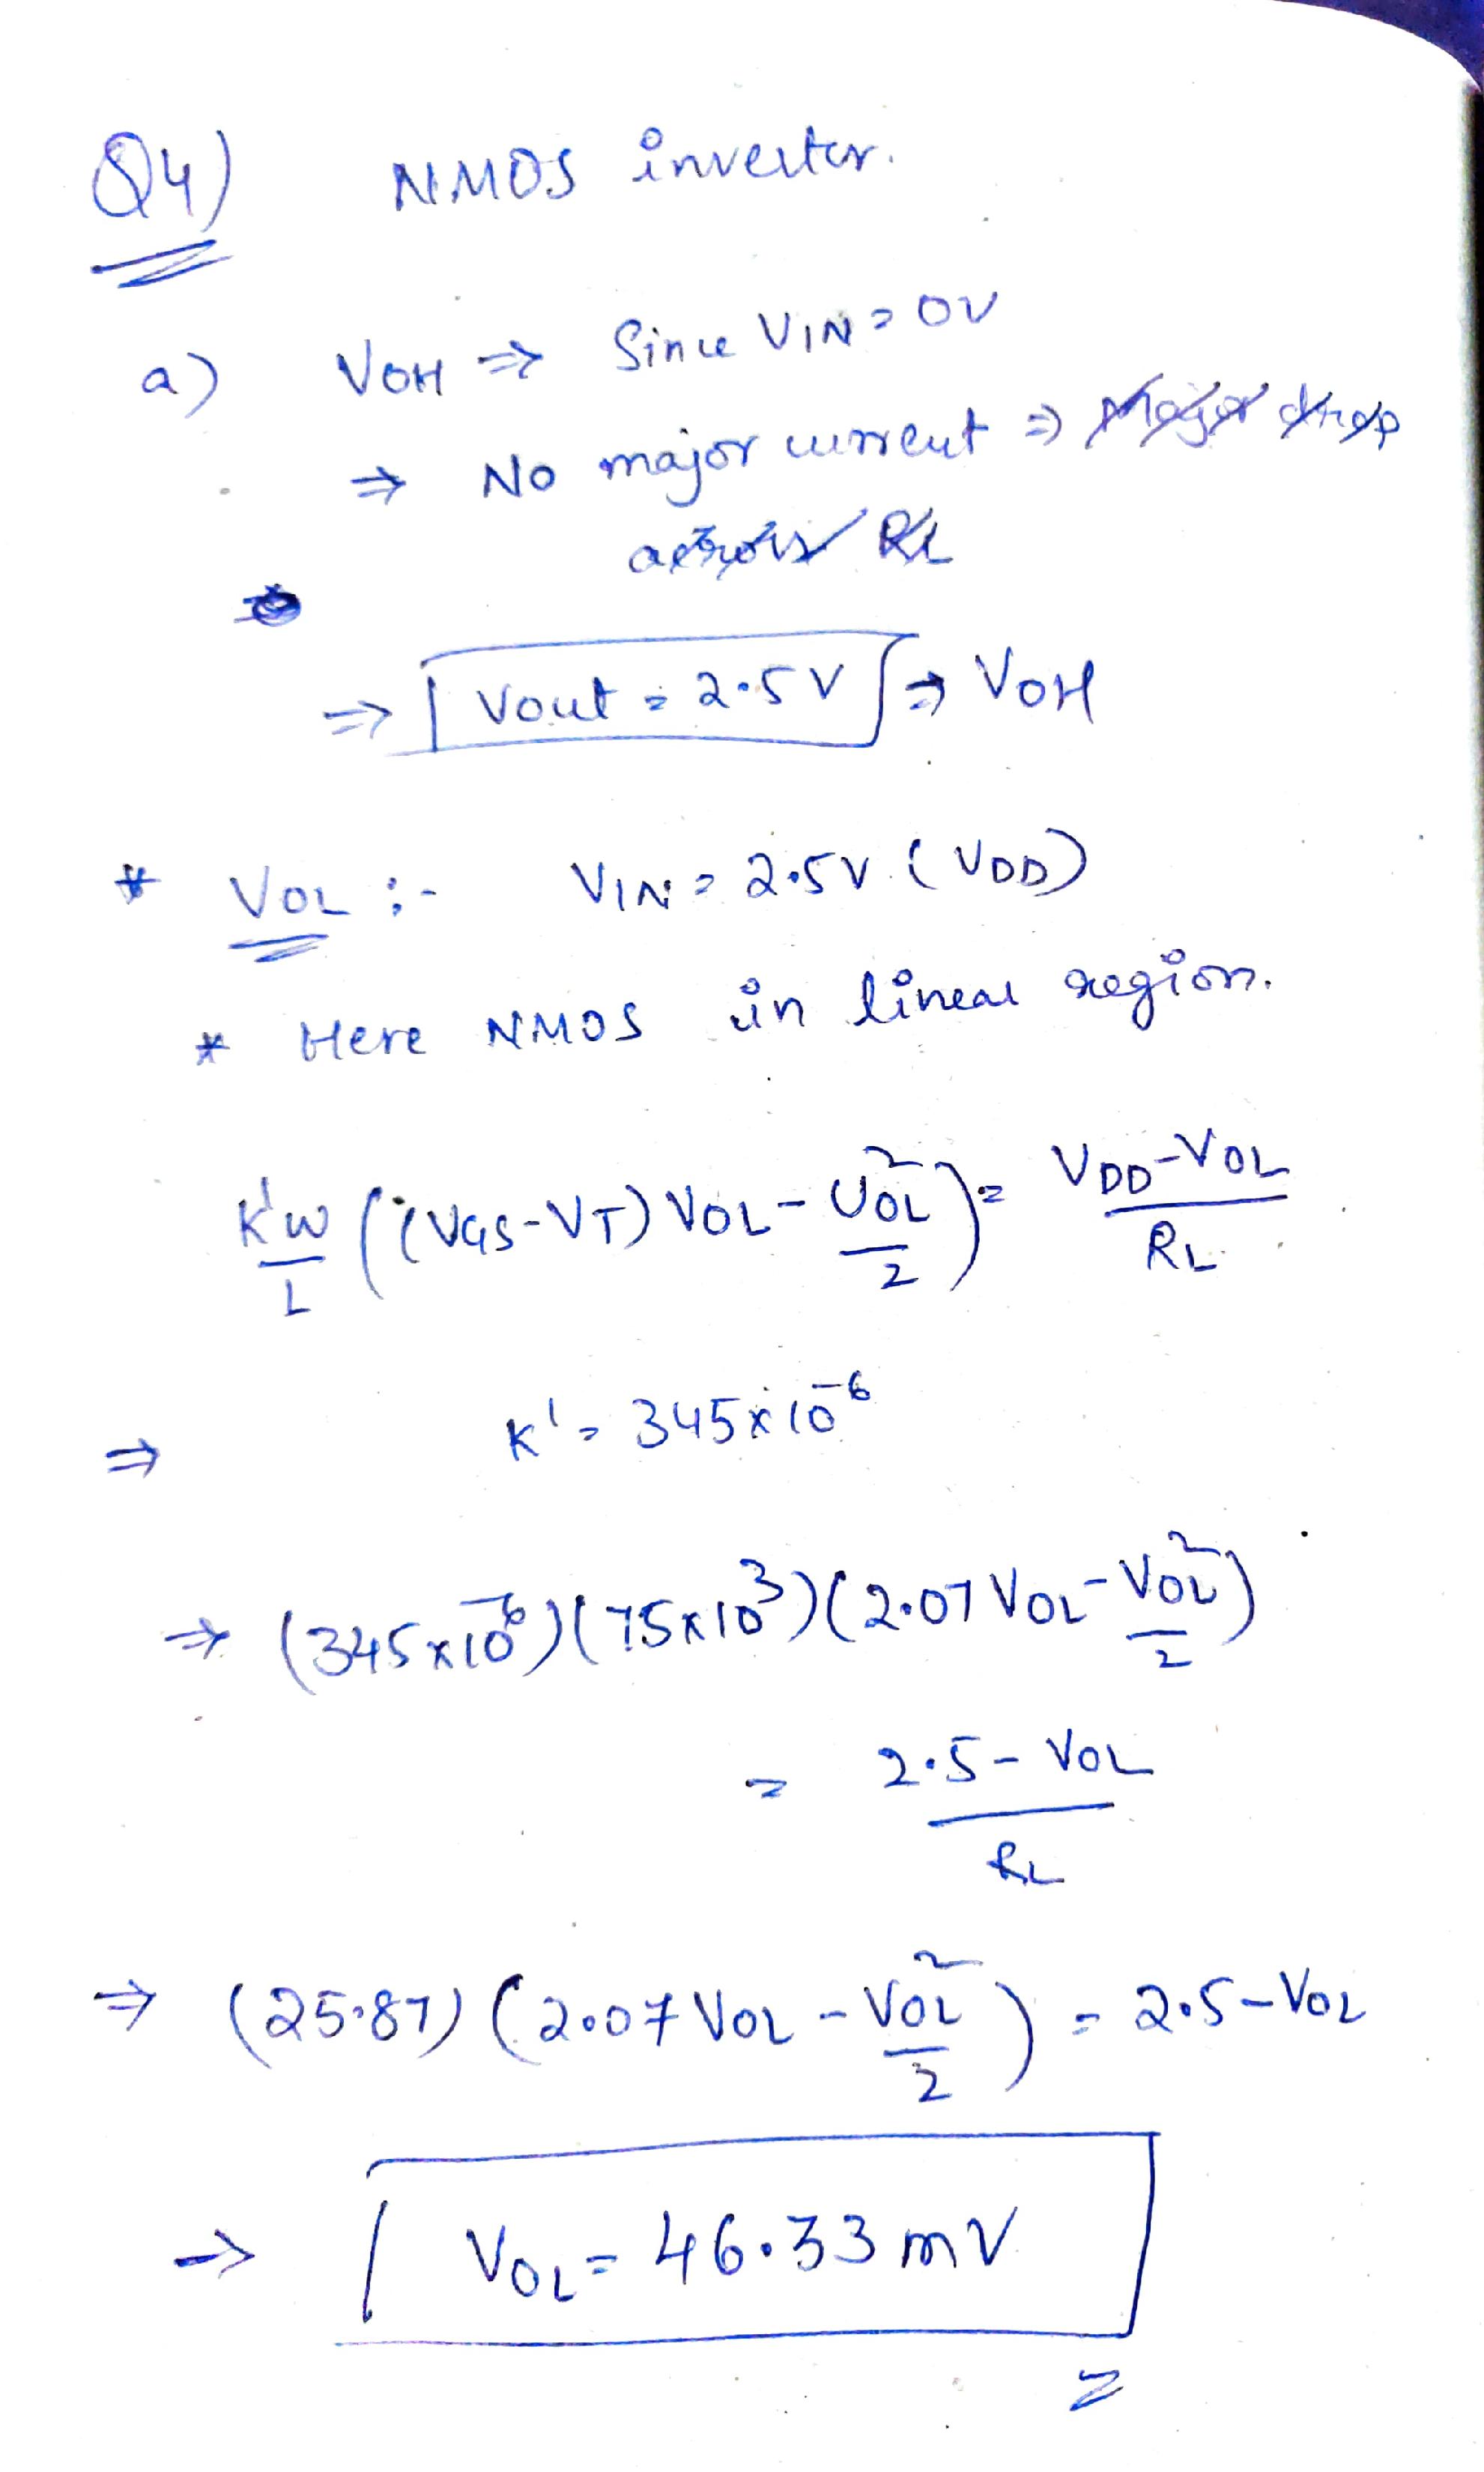 Q4) NMOS inverter.
a) VOH ⇒ Since VIN = 0V
⇒ No major current ⇒ Major drop
across RL
⇒ Vout = 2.5V ⇒ VOH
* VOL :- VIN = 2.5V (VDD)
* Here NMOS in linear region.
K'W/L ((VGS-VT) VOL - VOL²/2) = VDD-VOL/RL
⇒ K' = 345×10⁻⁶
⇒ (345×10⁻⁶)(75×10³)(2.07 VOL - VOL²/2)
= 2.5 - VOL/RL
⇒ (25.87) (2.07 VOL - VOL²/2) = 2.5 - VOL
⇒ VOL = 46.33 mV